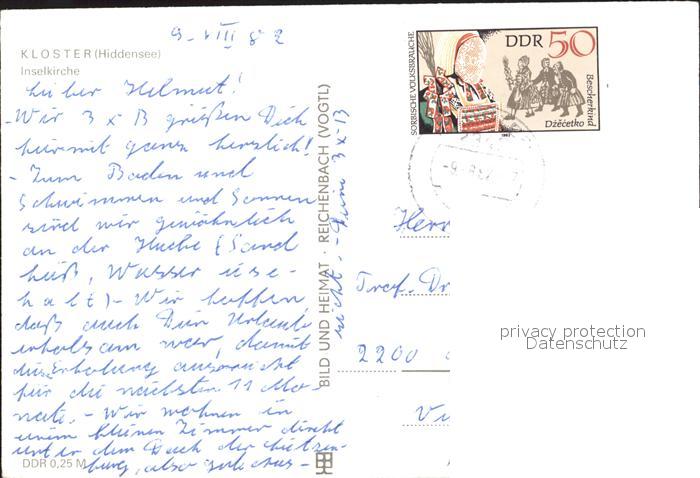 9. VIII 82
KLOSTER (Hiddensee)
Inselkirche
Lieber Helmut!
- Wir 3 x B grüßen Dich
hiermit ganz herzlich!
- Zum Baden und
Schwimmen und Sonnen
sind wir gewöhnlich
an der Hucke (Sand
heiß, Wasser eise-
kalt) - Wir hoffen
daß auch Dein Urlaub
erholsam war, damit
die Erholung ausreicht
für die nächsten 11 Mo-
nate. - Wir wohnen in
einem kleinen Zimmer direkt
unter dem Dach der
burg, also gute Aus-
sicht. - Deine 3 x B
DDR 0,25 M
BILD UND HEIMAT · REICHENBACH (VOGTL)
SORBISCHE VOLKSBRÄUCHE
DDR 50
Bescherkind
Dźěćetko
1982
-9.
Herr
Prof. Dr
2200
privacy protection
Datenschutz